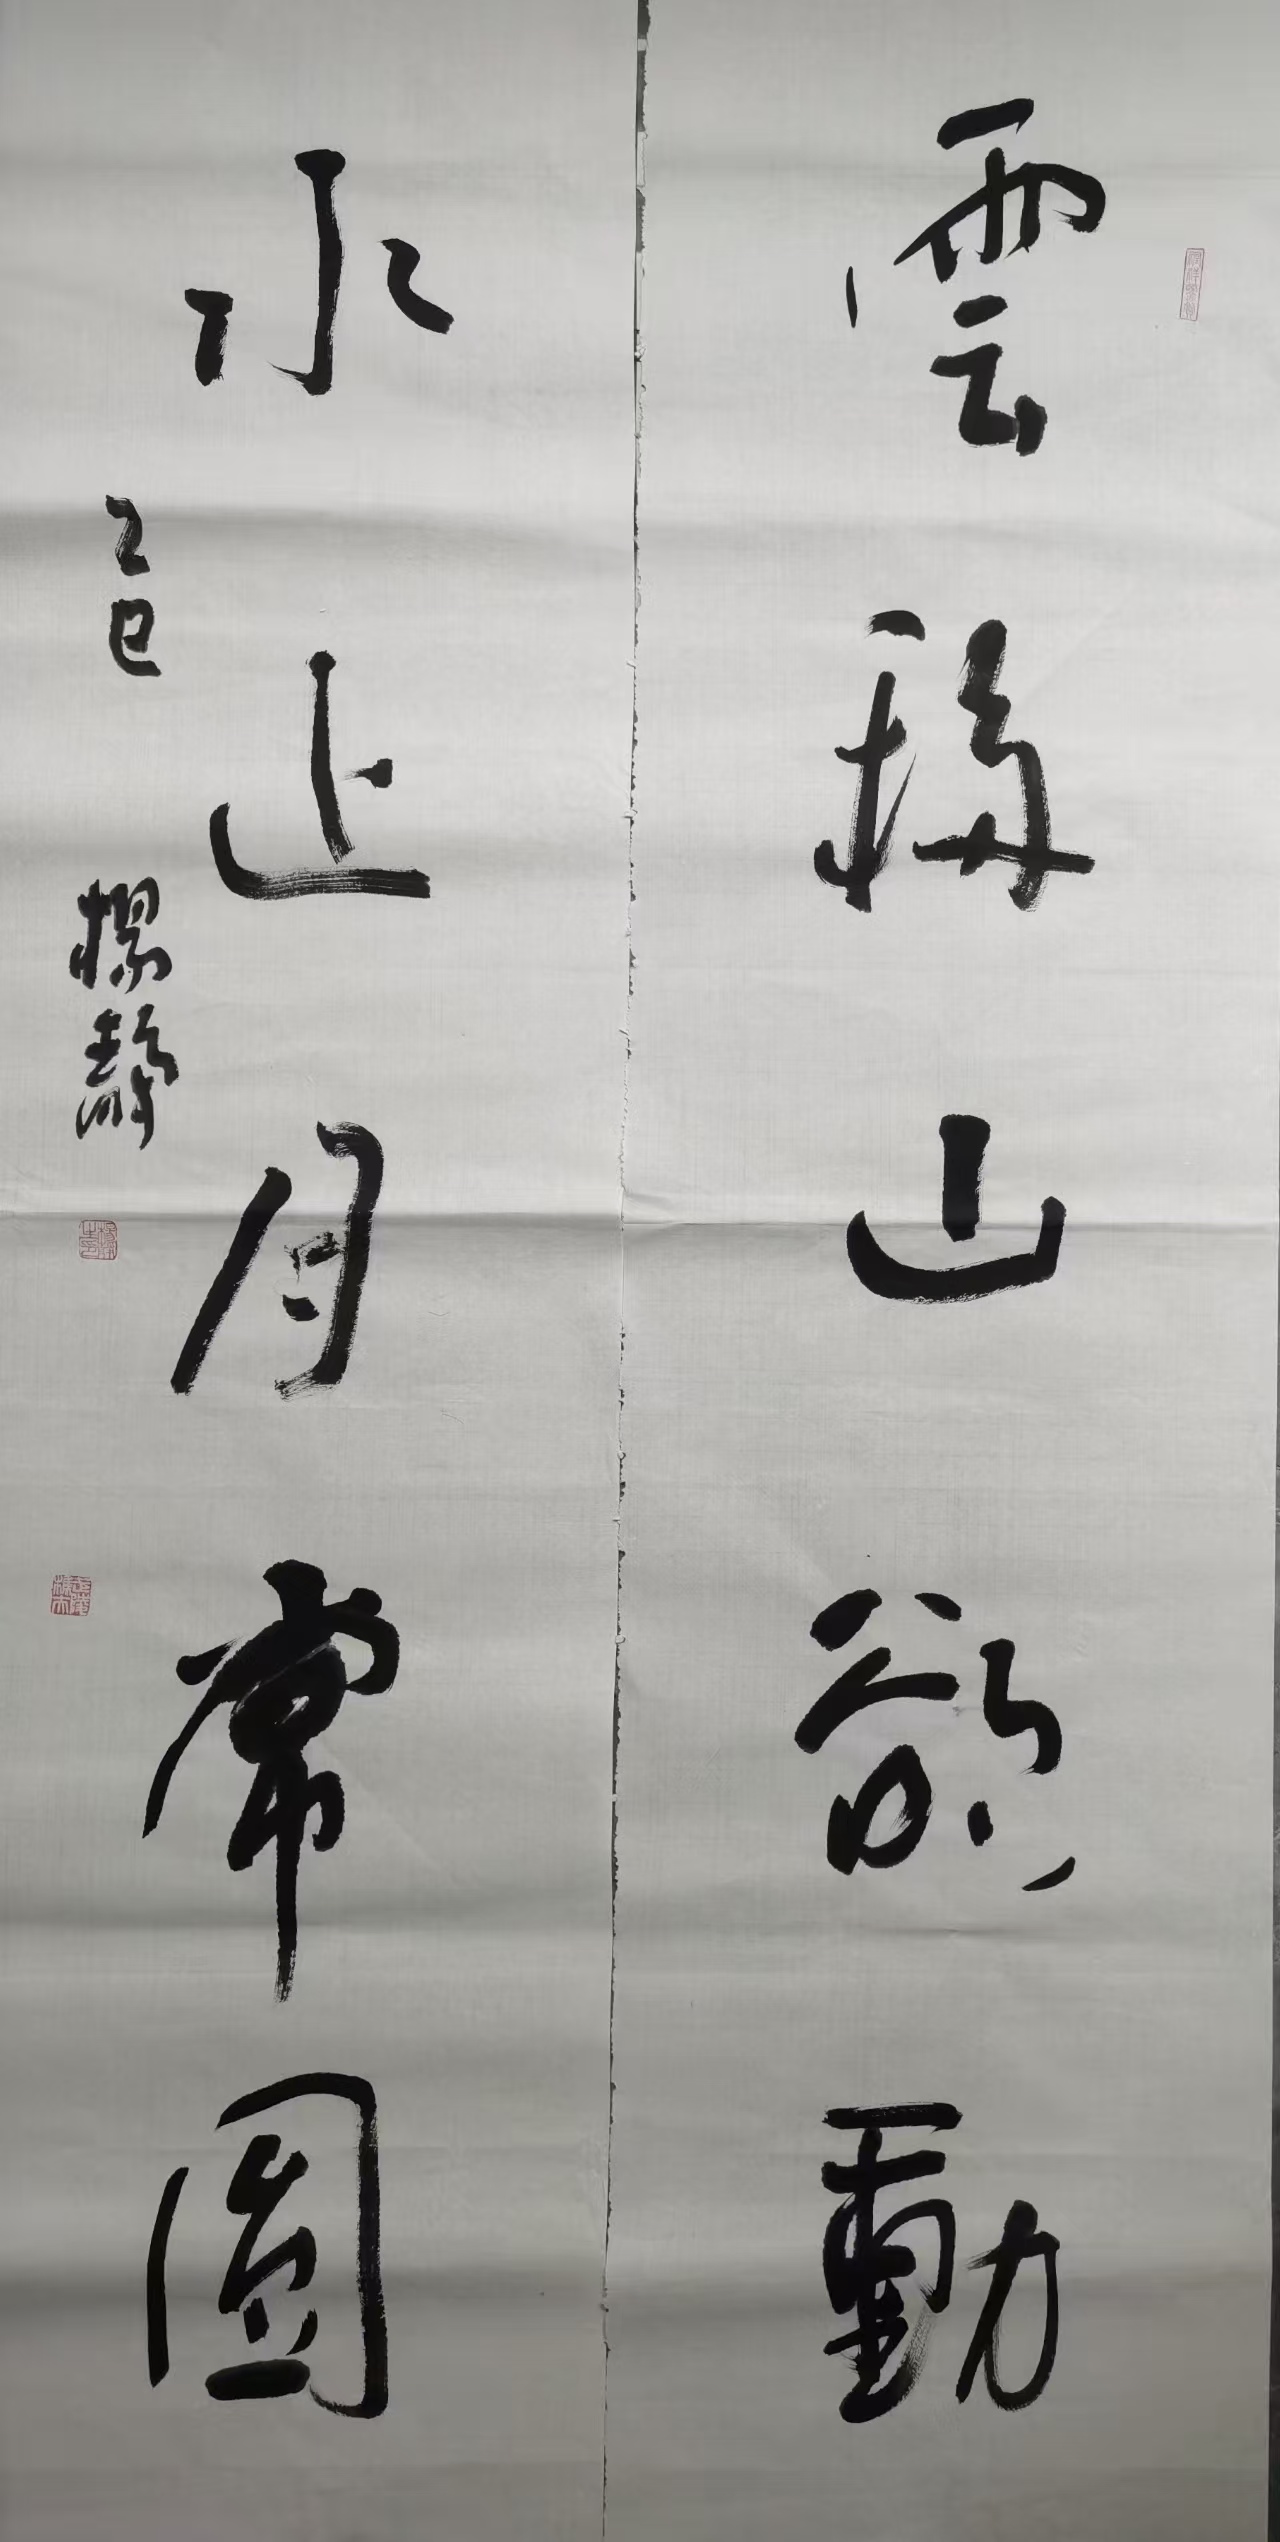 雲移山欲動
水止月常圓
乙巳
楊靜